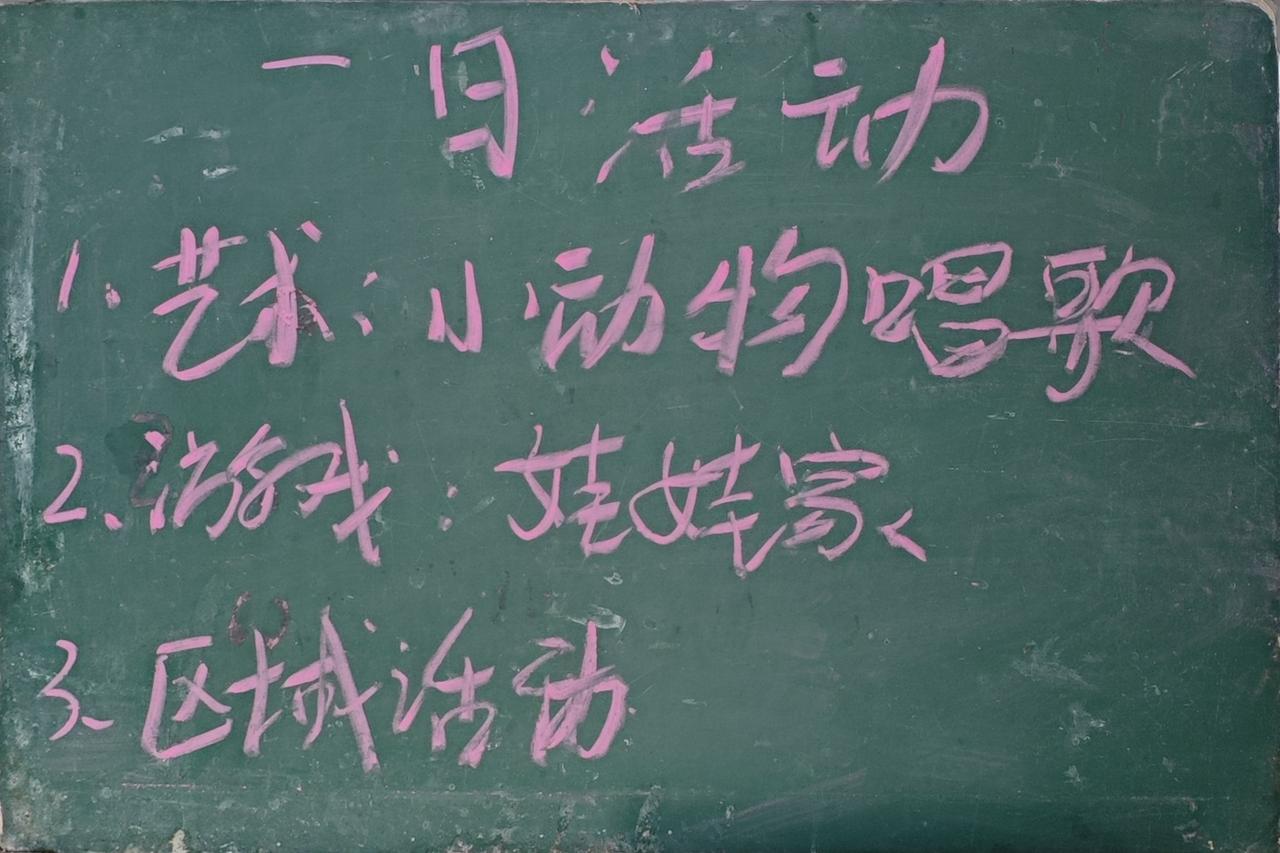 一日活动
1.艺术:小动物唱歌
2.游戏:娃娃家
3.区域活动